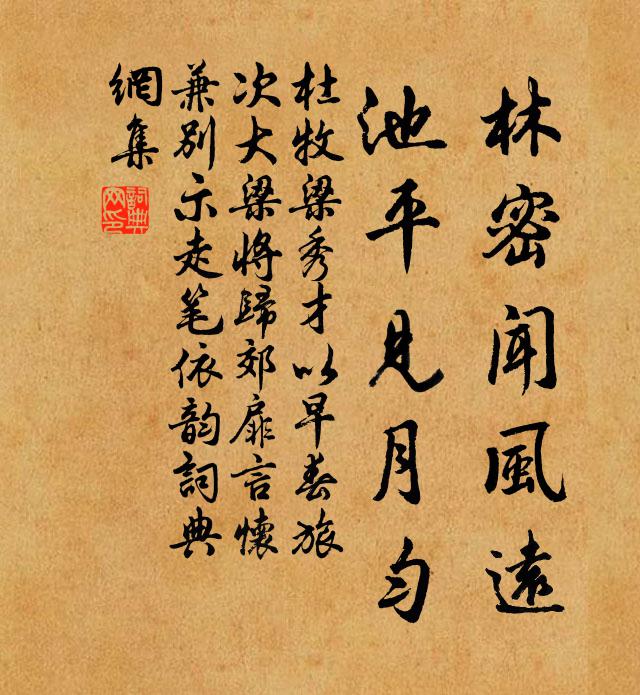 林密聞風遠
池平見月勻
杜牧梁秀才以早春旅
次大梁將歸郊扉言懷
兼別示走笔依韵詞典
網集
詞典
网印